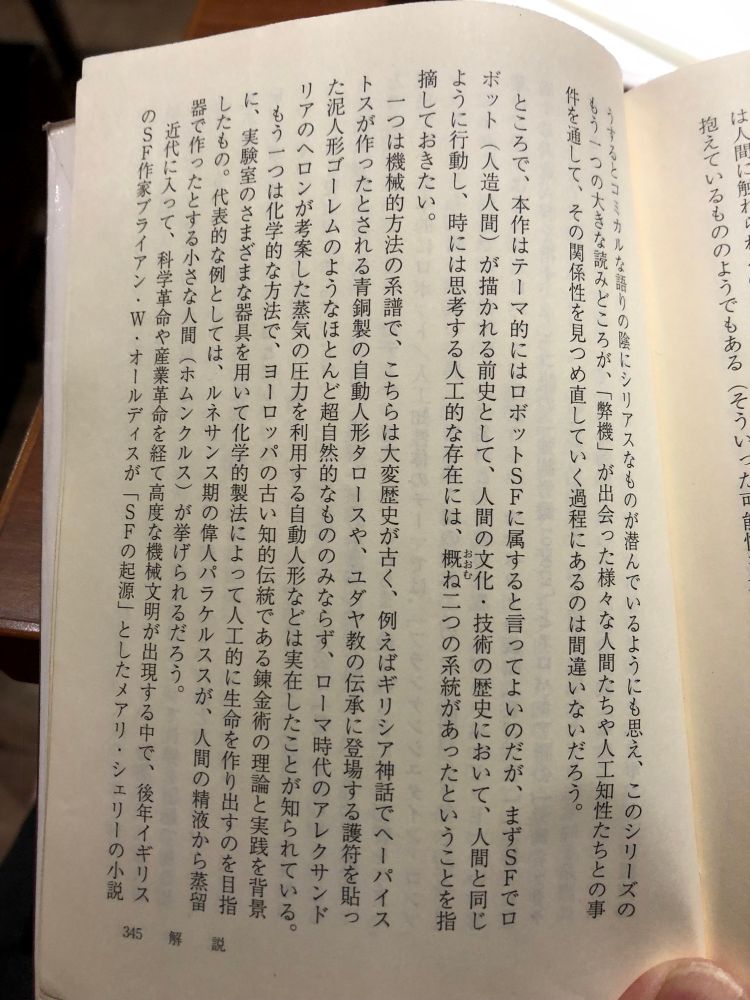 は人間に触れられ
抱えているもののようでもある（そういった可能性
うするとコミカルな語りの陰にシリアスなものが潜んでいるようにも思え、このシリーズの
もう一つの大きな読みどころが、「弊機」が出会った様々な人間たちや人工知性たちとの事
件を通して、その関係性を見つめ直していく過程にあるのは間違いないだろう。
ところで、本作はテーマ的にはロボットＳＦに属すると言ってよいのだが、まずＳＦでロ
ボット（人造人間）が描かれる前史として、人間の文化・技術の歴史において、人間と同じ
ように行動し、時には思考する人工的な存在には、概ね二つの系統があったということを指
おおむ
摘しておきたい。
一つは機械的方法の系譜で、こちらは大変歴史が古く、例えばギリシア神話でヘーパイス
トスが作ったとされる青銅製の自動人形タロースや、ユダヤ教の伝承に登場する護符を貼っ
た泥人形ゴーレムのようなほとんど超自然的なもののみならず、ローマ時代のアレクサンド
リアのヘロンが考案した蒸気の圧力を利用する自動人形などは実在したことが知られている。
もう一つは化学的な方法で、ヨーロッパの古い知的伝統である錬金術の理論と実践を背景
に、実験室のさまざまな器具を用いて化学的製法によって人工的に生命を作り出すのを目指
したもの。代表的な例としては、ルネサンス期の偉人パラケルススが、人間の精液から蒸留
器で作ったとする小さな人間（ホムンクルス）が挙げられるだろう。
近代に入って、科学革命や産業革命を経て高度な機械文明が出現する中で、後年イギリス
のＳＦ作家ブライアン・Ｗ・オールディスが「ＳＦの起源」としたメアリ・シェリーの小説
345 解説